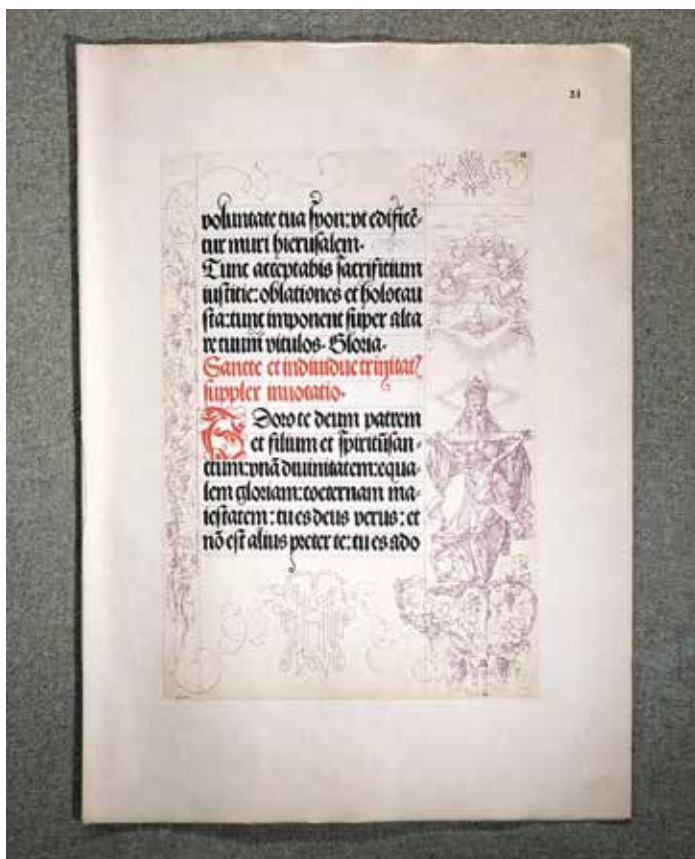 21
voluntate tua syon: vt edificē-
tur muri hierusalem.
Tunc acceptabis sacrificium
iusticie: oblationes et holocau
sta: tunc imponent super alta
re tuum vitulos. Gloria.
Sancte et indiuidue trinitatꝭ
supplex inuocatio.
Adoro te deum patrem
et filium et spiritūsan-
ctum: vnā diuinitatem: equa-
lem gloriam: coeternam ma-
iestatem: tu es deus verus: et
nō est alius preter te: tu es ado